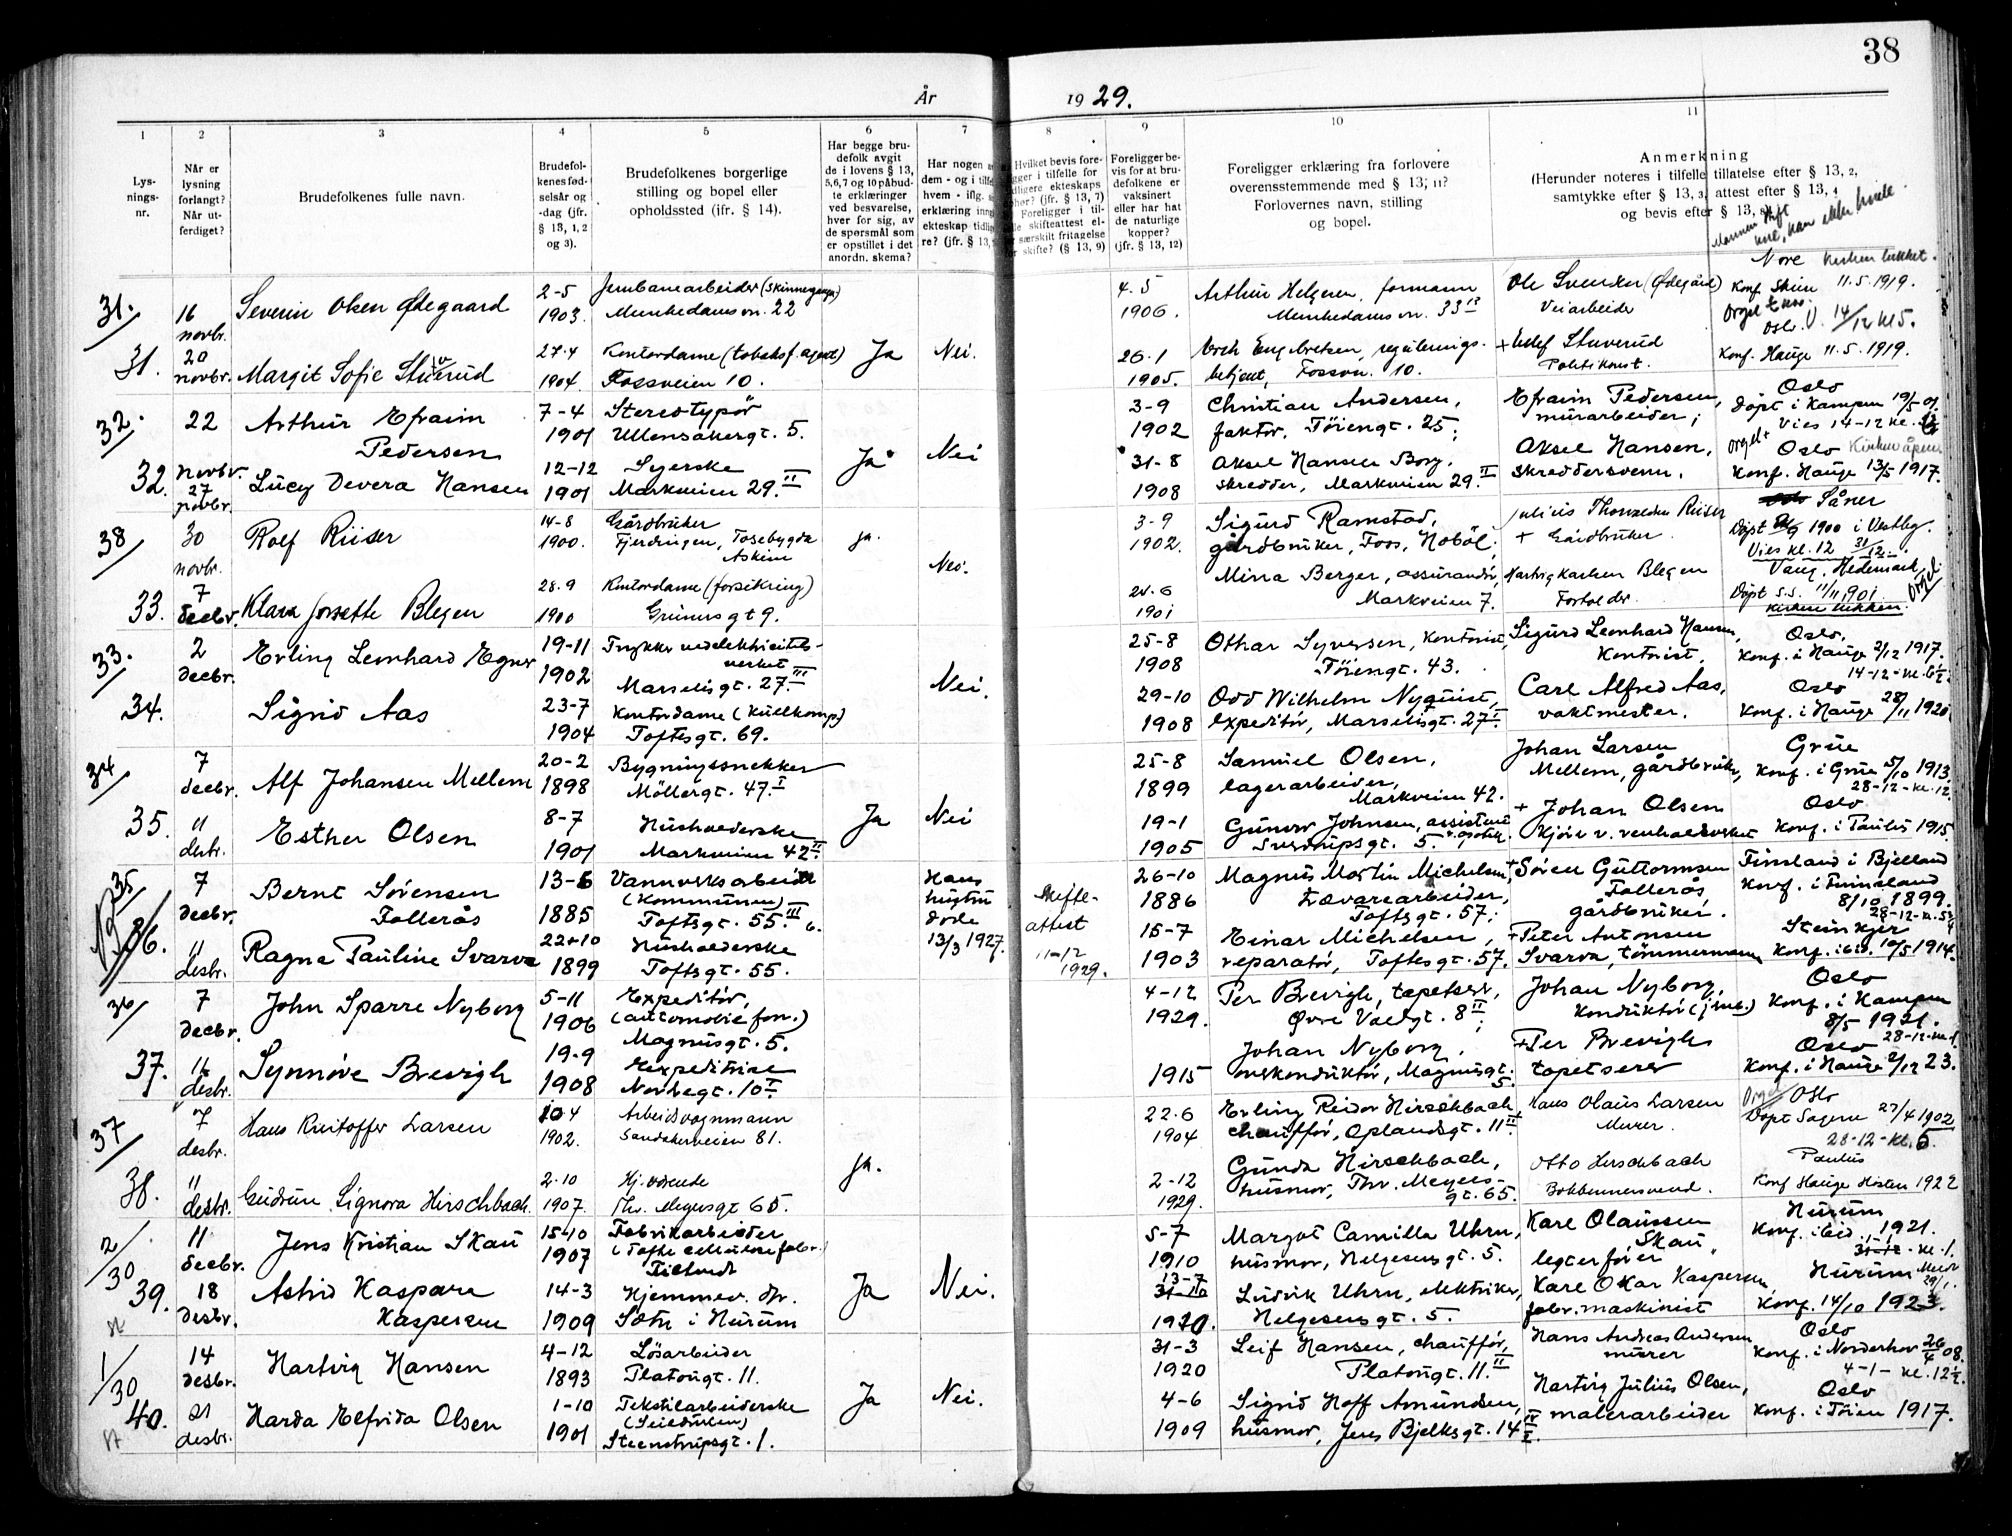 38
År 1929.
1 2 3 4 5 6 7 8 9 10 11
Lys-
nings-
nr.
Når er
lysning
forlangt?
Når ut-
ferdiget?
Brudefolkenes fulle navn.
Brudefol-
kenes fød-
selsår og
-dag (jfr.
§ 13, 1, 2
og 3).
Brudefolkenes borgerlige
stilling og bopel eller
opholdssted (ifr. § 14).
Har begge bru-
defolk avgit
de i lovens § 13,
5,6,7 og 10 påbud-
te erklæringer
ved besvarelse,
hver for sig, av
de spørsmål som
er opstillet i det
anordn. skema?
Har nogen a
dem - og i tilfe
hvem - iflg.
erklæring inng
ekteskap tidlig
re? (jfr. § 13,
Hvilket bevis fore-
gger i tilfelle for
dligere ekteskaps
phør? (jfr. § 13, 7)
Foreligger i til-
le skifteattest el-
særskilt fritagelse
r skifte? (§ 13, 9)
Foreligger be-
vis for at bru-
defolkene er
vaksinert
eller har hat
de naturlige
kopper?
(jfr. § 13, 12)
Foreligger erklæring fra forlovere
overensstemmende med § 13, 11?
Forlovernes navn, stilling
og bopel.
Anmerkning
(Herunder noteres i tilfelle tillatelse efter § 13, 2,
samtykke efter § 13, 3, attest efter § 13, 4
og bevis efter § 13, 8)
31. 16 novbr. Severin Olsen Ødegaard 2-5 1903. Jernbanearbeider (skinnegangen) Munkedamsvn. 22 4.5 1906. Arthur Helgesen, formann Munkedamsvn. 33 Ole Svendsen (Ødegård) Veiarbeider Nore Kirken lukket. Konf. Skien 11.5.1919. Oslo 14/12 kl 5.
31. 20 novbr. Margit Sofie Stuverud 27.4 1904. Kontordame (tobaksf. agent) Fossveien 10. Ja Nei. 26.1 1905. Engebretsen, regulerings-betjent, Fossvn. 10. + Stuverud Politikonst. Konf. Hauge 11.5.1919.
32. 22 novbr. Arthur Efraim Pedersen 7-4 1901 Stereotypør Ullensakergt. 5. Ja Nei 3-9 1902 Christian Andersen, faktor. Töiengt. 25; Efraim Pedersen, murarbeider; Oslo Döpt i Kampen 19/5 01. Vies 14-12 kl.
32. 27 novbr. Lucy Devera Hansen 12-12 1901 Syerske Markveien 29. II 31-8 1908 Aksel Hansen Borg, skredder, Markveien 29. II Aksel Hansen, skreddersvenn. orgel+ Oslo Kirken åpen Konf. Hauge 13/5 1917.
38 30 novbr. Rolf Riiser 14-8 1900. Gårdbruker Fjerdingen, Tosebygda Askim ja. Nei. 3-9 1902. Sigurd Ramstad, gårdbruker, Foss, Hobøl; Julius Thorvaldsen Riiser + Gårdbruker Såner Döpt 1900 i Vestby. Vies kl. 12 31/12.
33. 7 decbr. Klara Josette Blegen 28.9 1900 Kontordame (forsikring) Grünersgt 9. 24.6 1901 Mina Berger, assurandör, Markveien 7. Hartvig Karlsen Blegen Forvalder Vang, Hedemark Orgel Döpt s.s. 11/11 1901. Kirken lukken.
33. 2 decbr. Erling Leonhard Egner 19-11 1902 Trykker ved elektricitets-verket Marselisgt. 27. III Nei. 25-8 1908 Othar Syversen, kontorist, Töiengt. 43. Sigurd Leonhard Hansen, Kontorist. Oslo. Konf. i Hauge 2/12 1917. 14-12-kl. 6½
34. Sigrid Aas 23-7 1904 Kontordame (Kullkomp.) Toftesgt. 69. 29-10 1908 Odd Wilhelm Nyquist, expeditör, Marselisgt. 27. Carl Alfred Aas, vaktmester. Oslo Konf. i Hauge 28/11 1920
34 7 decbr. Alf Johansen Mellem 20-2 1898 Bygningssnekker Möllergt. 47. I Ja Nei 25-8 1899 Samuel Olsen, lagerarbeider, Markveien 42. Johan Larsen Mellem, gårdbruker, Grue Konf. i Grue 5/10 1913. 28-12-kl. 12.
35. " desbr. Esther Olsen 8-7 1901 Husholderske Markveien 42 II. 19-1 1905 Gunvor Johnsen, assistent Sverdrupsgt. 5. + Johan Olsen Kjörer v. renholdsverket Oslo Konf. i Paulus 1915
35 7 decbr. Bernt Sörensen Follerås 13-6 1885 Vannverksarbeider (Kommunen) Toftesgt. 55. III Hans hustru döde 13/3 1927. Skifte-attest 11-12 1929. 26-10 1886 Magnus Martin Michelsen, Lævarearbeider, Toftesgt. 57; Sören Guttormsen Follerås gårdbruker. Finsland i Bjelland Konf. i Finsland 8/10 1899. 28-12-kl. 5¾
36. " desbr. Ragna Pauline Svarva 22-10 1899 Husholderske Toftesgt. 55. 15-7 1903 Einar Michelsen, reparatör, Toftesgt. 57. + Peter Antonsen Svarva, tömmermann Steinkjer Konf. ibid. 10/5 1914.
36 7 decbr. John Sparre Nyborg 5-11 1906 Expeditör, (automobilforr.) Magnusgt. 5. 4-12 1929. Per Brevigh, tapetserer, Övre Voldgt. 8 II; Johan Nyborg, Konduktör (jernb.) Oslo Konf. i Kampen 8/5 1921. 28-12-kl.
37. " desbr. Synnöve Brevigh 19-9 1908 Expeditrise Norbegt. 10 I 1915 Johan Nyborg, overkonduktör, Magnusgt. 5. + Per Brevigh tapetserer Oslo Konf. i Hauge 2/12 23.
37 7 desbr. Hans Kristoffer Larsen 10 4 1902. Arbeidsvognmann Sandakerveien 81. ja. 22.6 1904 Erling Reidar Hirschbach, chauffför, Oplandsgt. 11 II. + Hans Olaus Larsen Murer. Orgel Oslo Döpt Sagene 27/4 1902 28-12-kl. 6.
38. " desbr. Gudrun Signora Hirschbach. 2.10 1907. Hj. værende Thv. Meyersgt 65. 2-12 1929. Gunda Hirschbach, husmor, Thv. Meyers-gt. 65. Otto Hirschbach Bokbinnersvend. Paulus Konf Hauge Hösten 1922
2/30 11 decbr. Jens Kristian Skau 15-10 1907 Fabrikarbeider (Tofte cellulosefabr.) Filtvedt Ja Nei. 5-7 1910 Margot Camilla Uhrn, husmor, Helgesensgt. 5. Karl Olaussen Skau, legterförer Hurum Konf. ibid. 1921. 31-12-kl. 1.
39. 18 desbr. Astrid Kaspara Kaspersen 14-3 1909 Hjemmev. dtr. Sætre i Hurum 13-7 1920. Ludvik Uhrn, elektriker, Helgesensgt. 5. Karl Oskar Kaspersen fabr. maskinist Hurum Konf. 14/10 1923.
1/30 14 desbr. Hartvig Hansen 4-12 1893 Lösarbeider Platougt. 11. Ja Nei. 31-3 1920 Leif Hansen, chaufför, Platougt. 11. II Hans Andreas Andersen murer Oslo Konf. i Norderhov 26/4 08. 4-1-kl. 12½
40. 21 desbr. Harda Elfrida Olsen 1-10 1901 Tekstilarbeiderske (Seilduken) Steenstrupsgt. 1. 4-6 1909 Sigrid Hoff Amundsen, husmor, Jens Bjelkesgt. 14 Hartvig Julius Olsen, malerarbeider Oslo Konf. i Töien 1917.